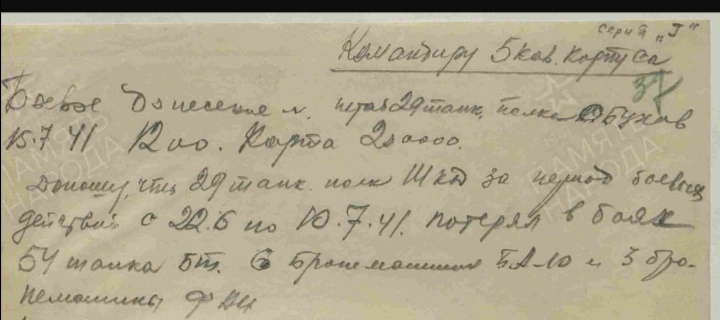 серия "Г"
Командиру 5 кав. корпуса
37
Боевое донесение н. штаб 29 танк. полка Обухов
15.7.41 12.00. Карта 200000.
Доношу, что 29 танк. полк за период боевых
действий с 22.6 по 10.7.41. потерял в боях
54 танка БТ. 6 бронемашин БА-10 и 3 бро-
немашины ФАИ
ПАМЯТЬ
НАРОДА
ПАМЯТЬ
НАРОДА